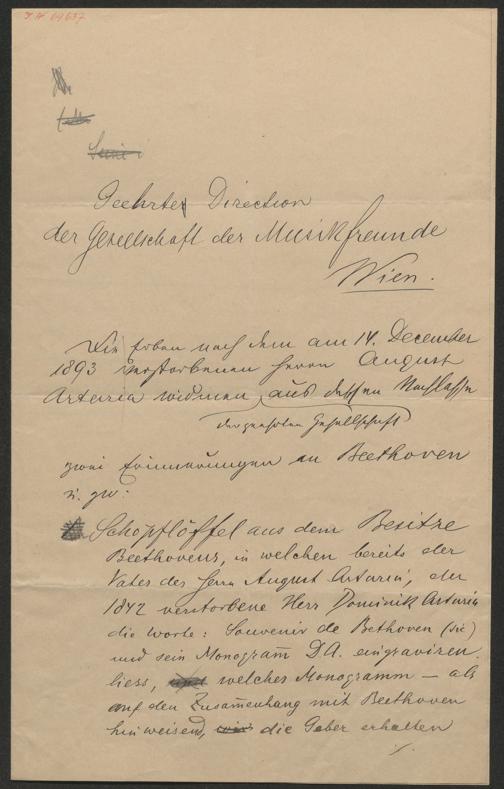 Geehrte Direction
der Gesellschaft der Musikfreunde
Wien.
Die Erben nach dem am 14. December
1893 verstorbenen Herrn August
Artaria widmen aus dessen Nachlasse
der geehrten Gesellschaft
zwei Erinnerungen an Beethoven
u. zw:
Schöpflöffel aus dem Besitze
Beethovens, in welchen bereits der
Vater des Herrn August Artaria, der
1842 verstorbene Herr Dominik Artaria
die Worte: Souvenir de Bethoven (sic)
und sein Monogram̅ D.A. eingraviren
liess, welches Monogramm – als
auf den Zusam̅enhang mit Beethoven
hinweisend, die Geber erhalten
./.